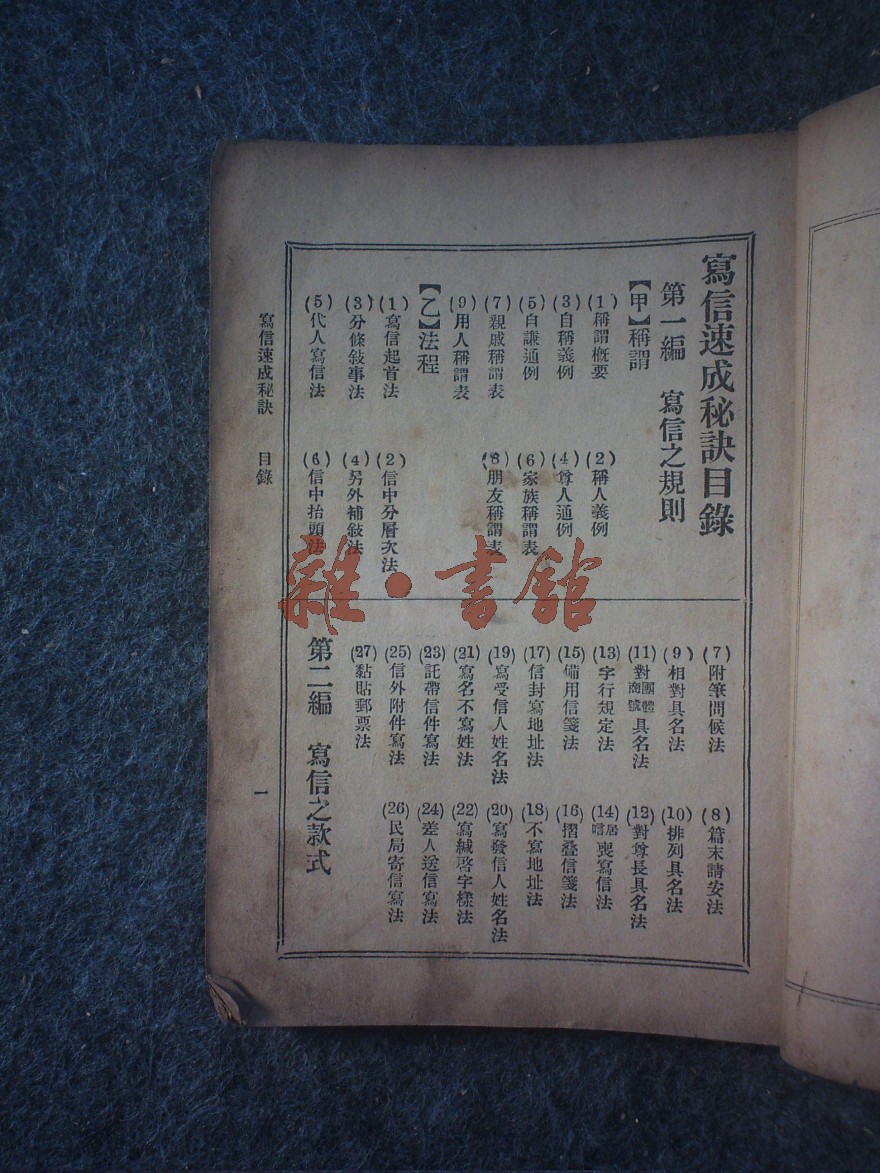 寫信速成秘訣目錄
第一編　寫信之規則
【甲】稱謂
(1)稱謂槪要　(2)稱人義例
(3)自稱義例　(4)尊人通例
(5)自謙通例　(6)家族稱謂表
(7)親戚稱謂表　(8)朋友稱謂表
(9)用人稱謂表
【乙】法程
(1)寫信起首法　(2)信中分層次法
(3)分條敍事法　(4)另外補敍法
(5)代人寫信法　(6)信中抬頭法
(7)附筆問候法　(8)篇末請安法
(9)相對具名法　(10)排列具名法
(11)對團體商號具名法　(12)對尊長具名法
(13)字行規定法　(14)居喪寫信法
(15)備用信箋法　(16)摺叠信箋法
(17)信封寫地址法　(18)不寫地址法
(19)寫受信人姓名法　(20)寫發信人姓名法
(21)寫名不寫姓法　(22)寫緘啓字樣法
(23)託帶信件寫法　(24)差人送信寫法
(25)信外附件寫法　(26)民局寄信寫法
(27)黏貼郵票法
第二編　寫信之款式
寫信速成秘訣　目錄
一
雜·書館